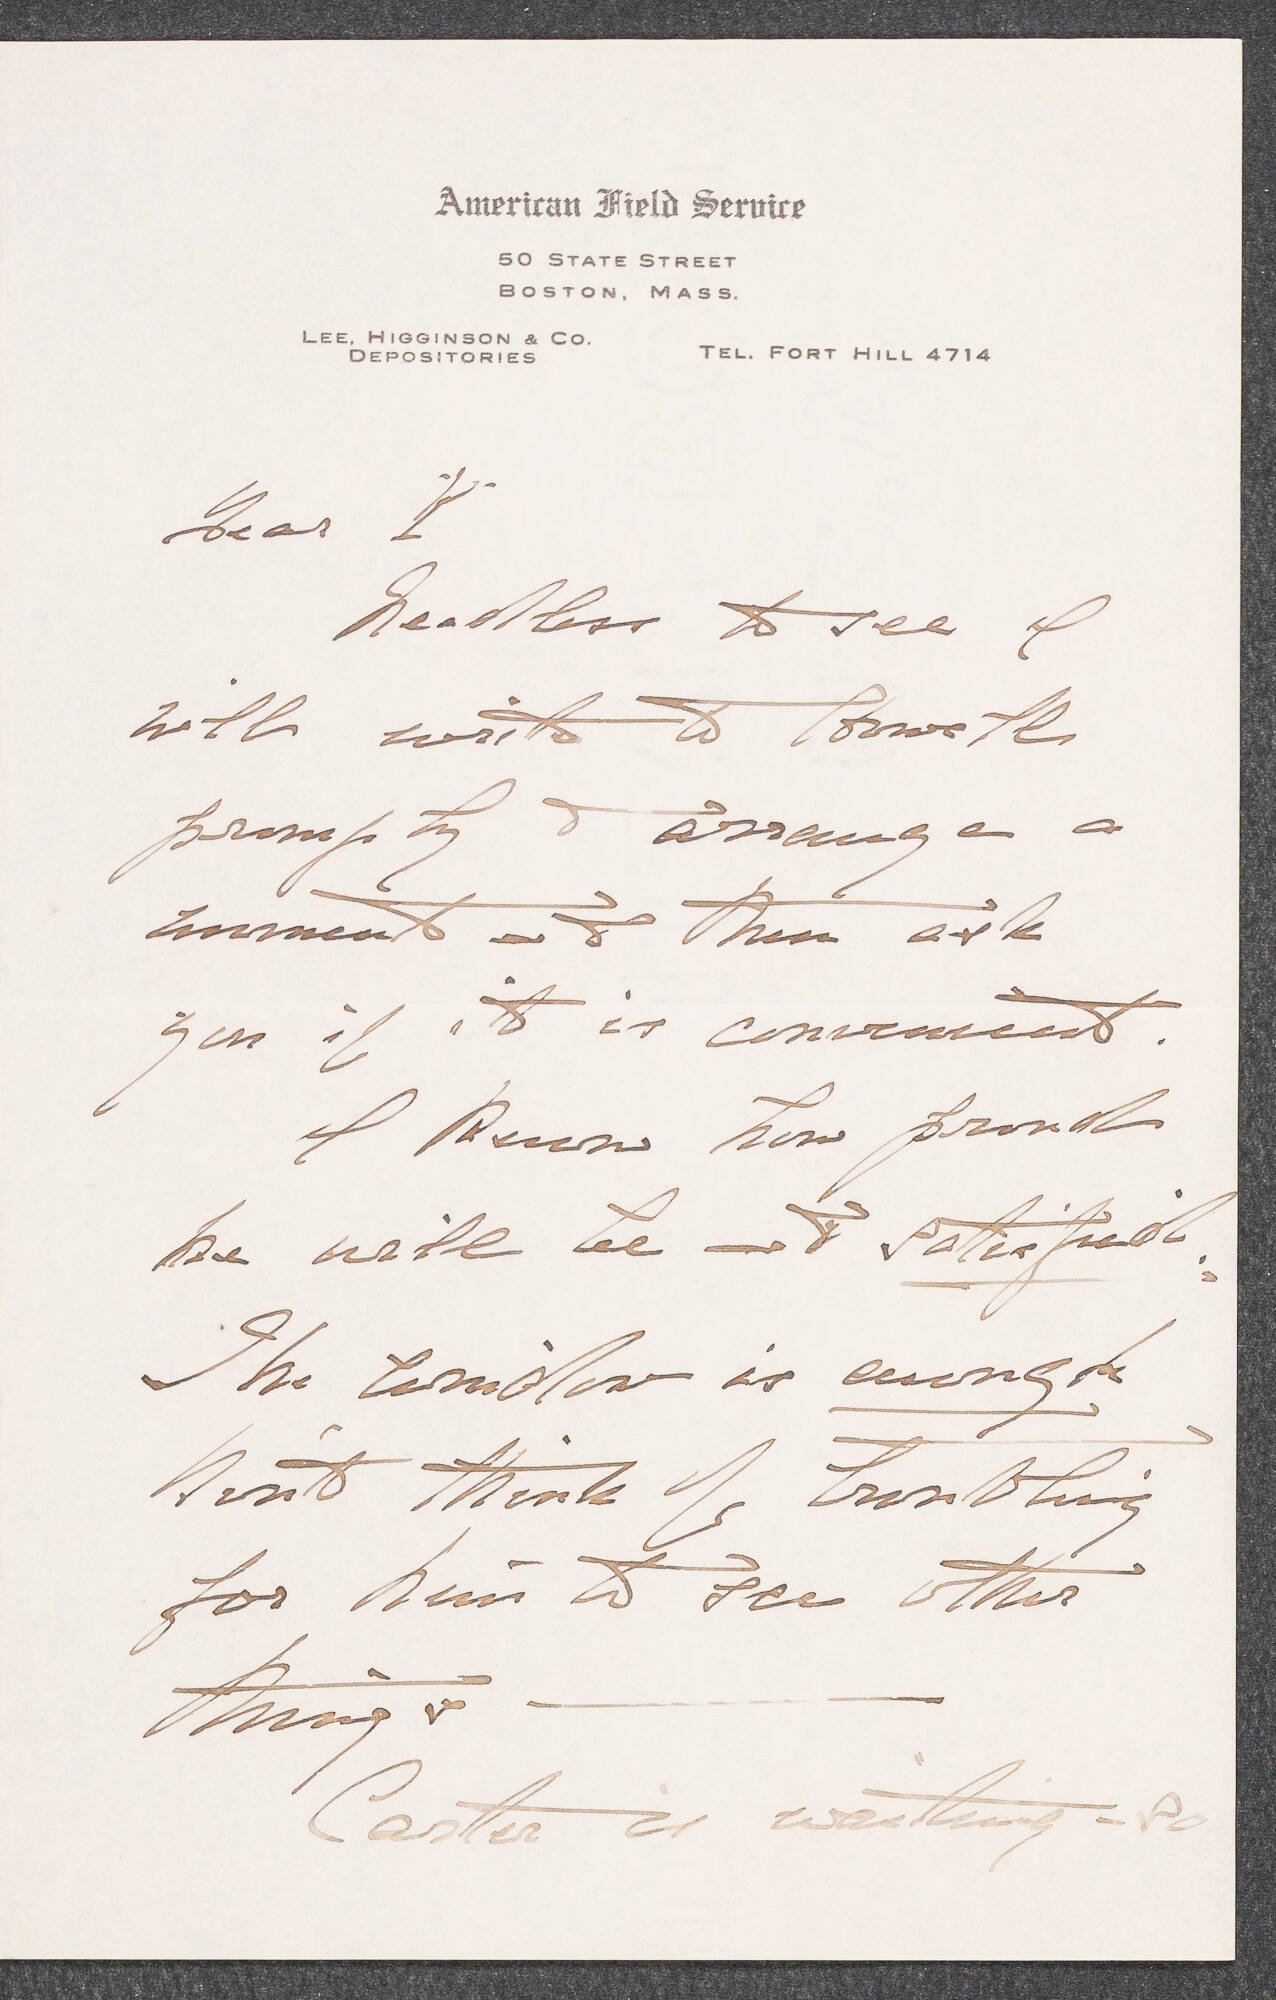 American Field Service
50 STATE STREET
BOSTON, MASS.
LEE, HIGGINSON & CO.
DEPOSITORIES
TEL. FORT HILL 4714
Dear Y
Needless to see I
will write to
promptly & arrange a
moment and then ask
you if it is convenient.
I know how proud
he will be and satisfied.
The window is enough
don't think of troubling
for him to see other
things —
Carter is waiting - so